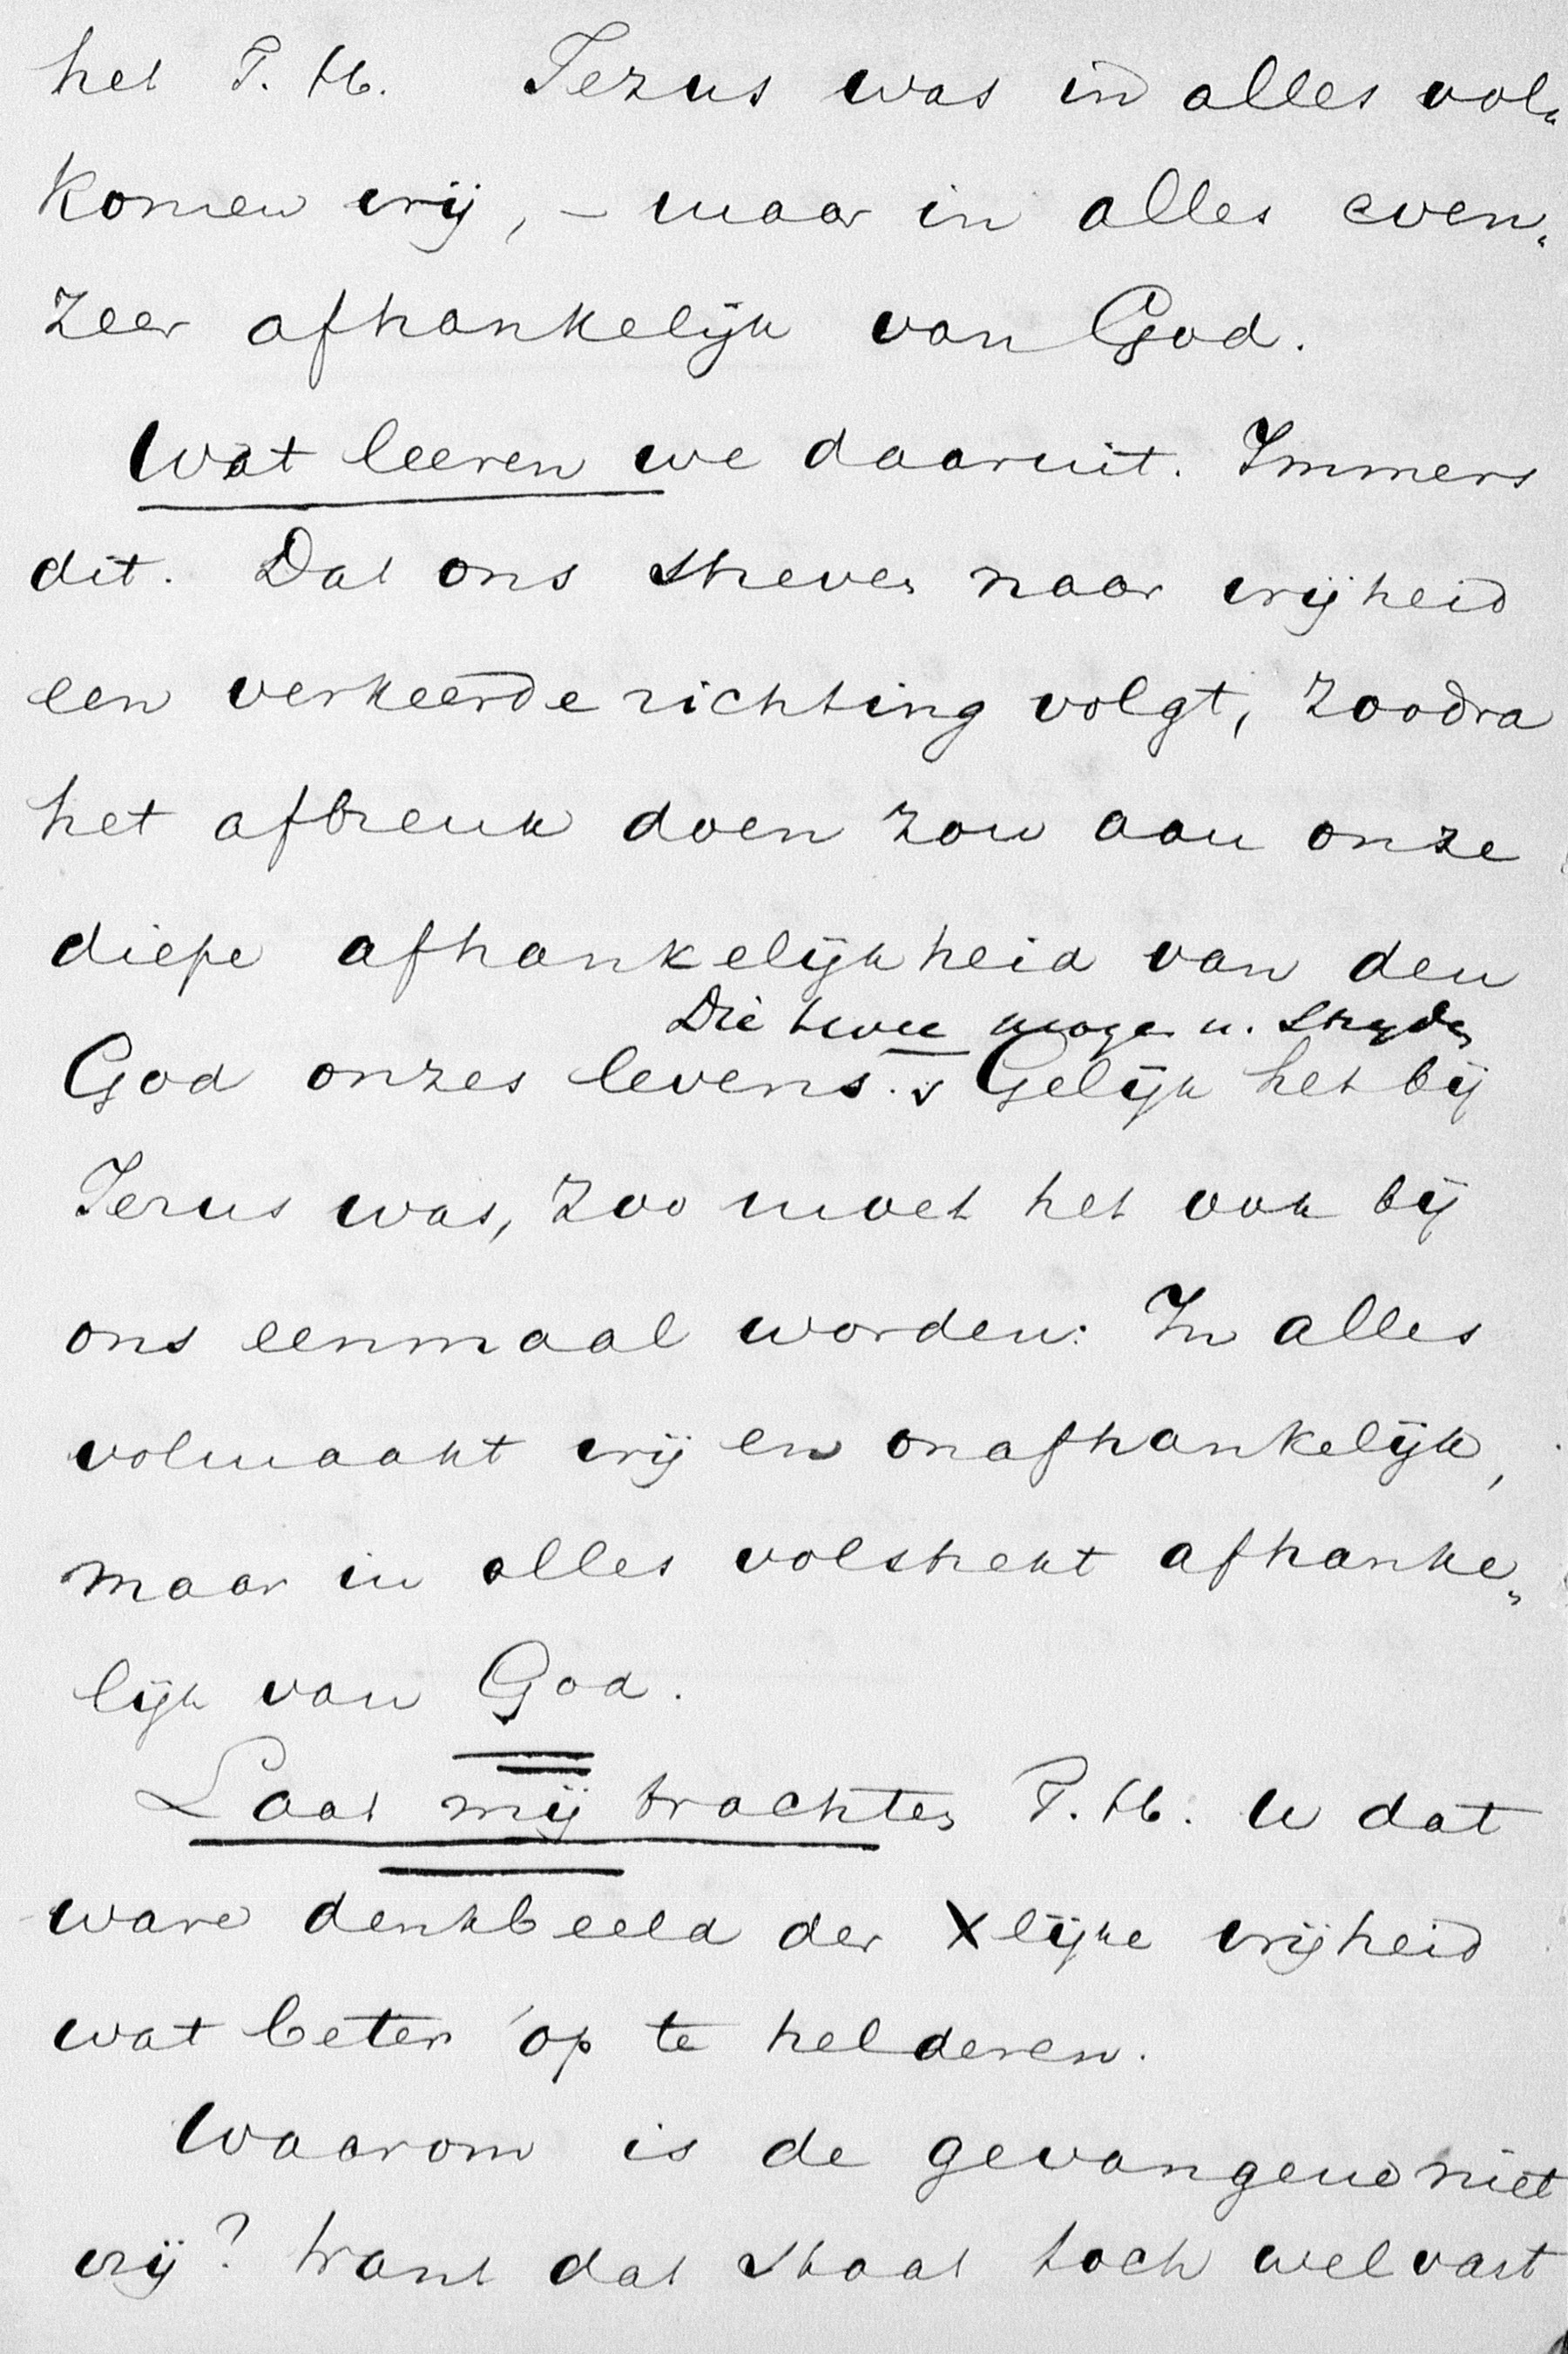 het T. H. Jezus was in alles vol„
komen vrij, – maar in alles even„
zeer afhankelijk van God.
Wat leeren we daaruit. Immers
dit. Dat ons streven naar vrijheid
een verkeerde richting volgt, zoodra
het afbreuk doen zou aan onze
diepe afhankelijkheid van den
Die twee mogen n. strijden
God onzes levens. Gelijk het bij
Jezus was, zoo moet het ook bij
ons eenmaal worden: In alles
volmaakt vrij en onafhankelijk,
maar in alles volstrekt afhanke„
lijk van God.
Laat mij trachten T. H. U dat
ware denkbeeld der Xlijke vrijheid
wat beter op te helderen.
Waarom is de gevangene niet
vrij? Want dat staat toch wel vast